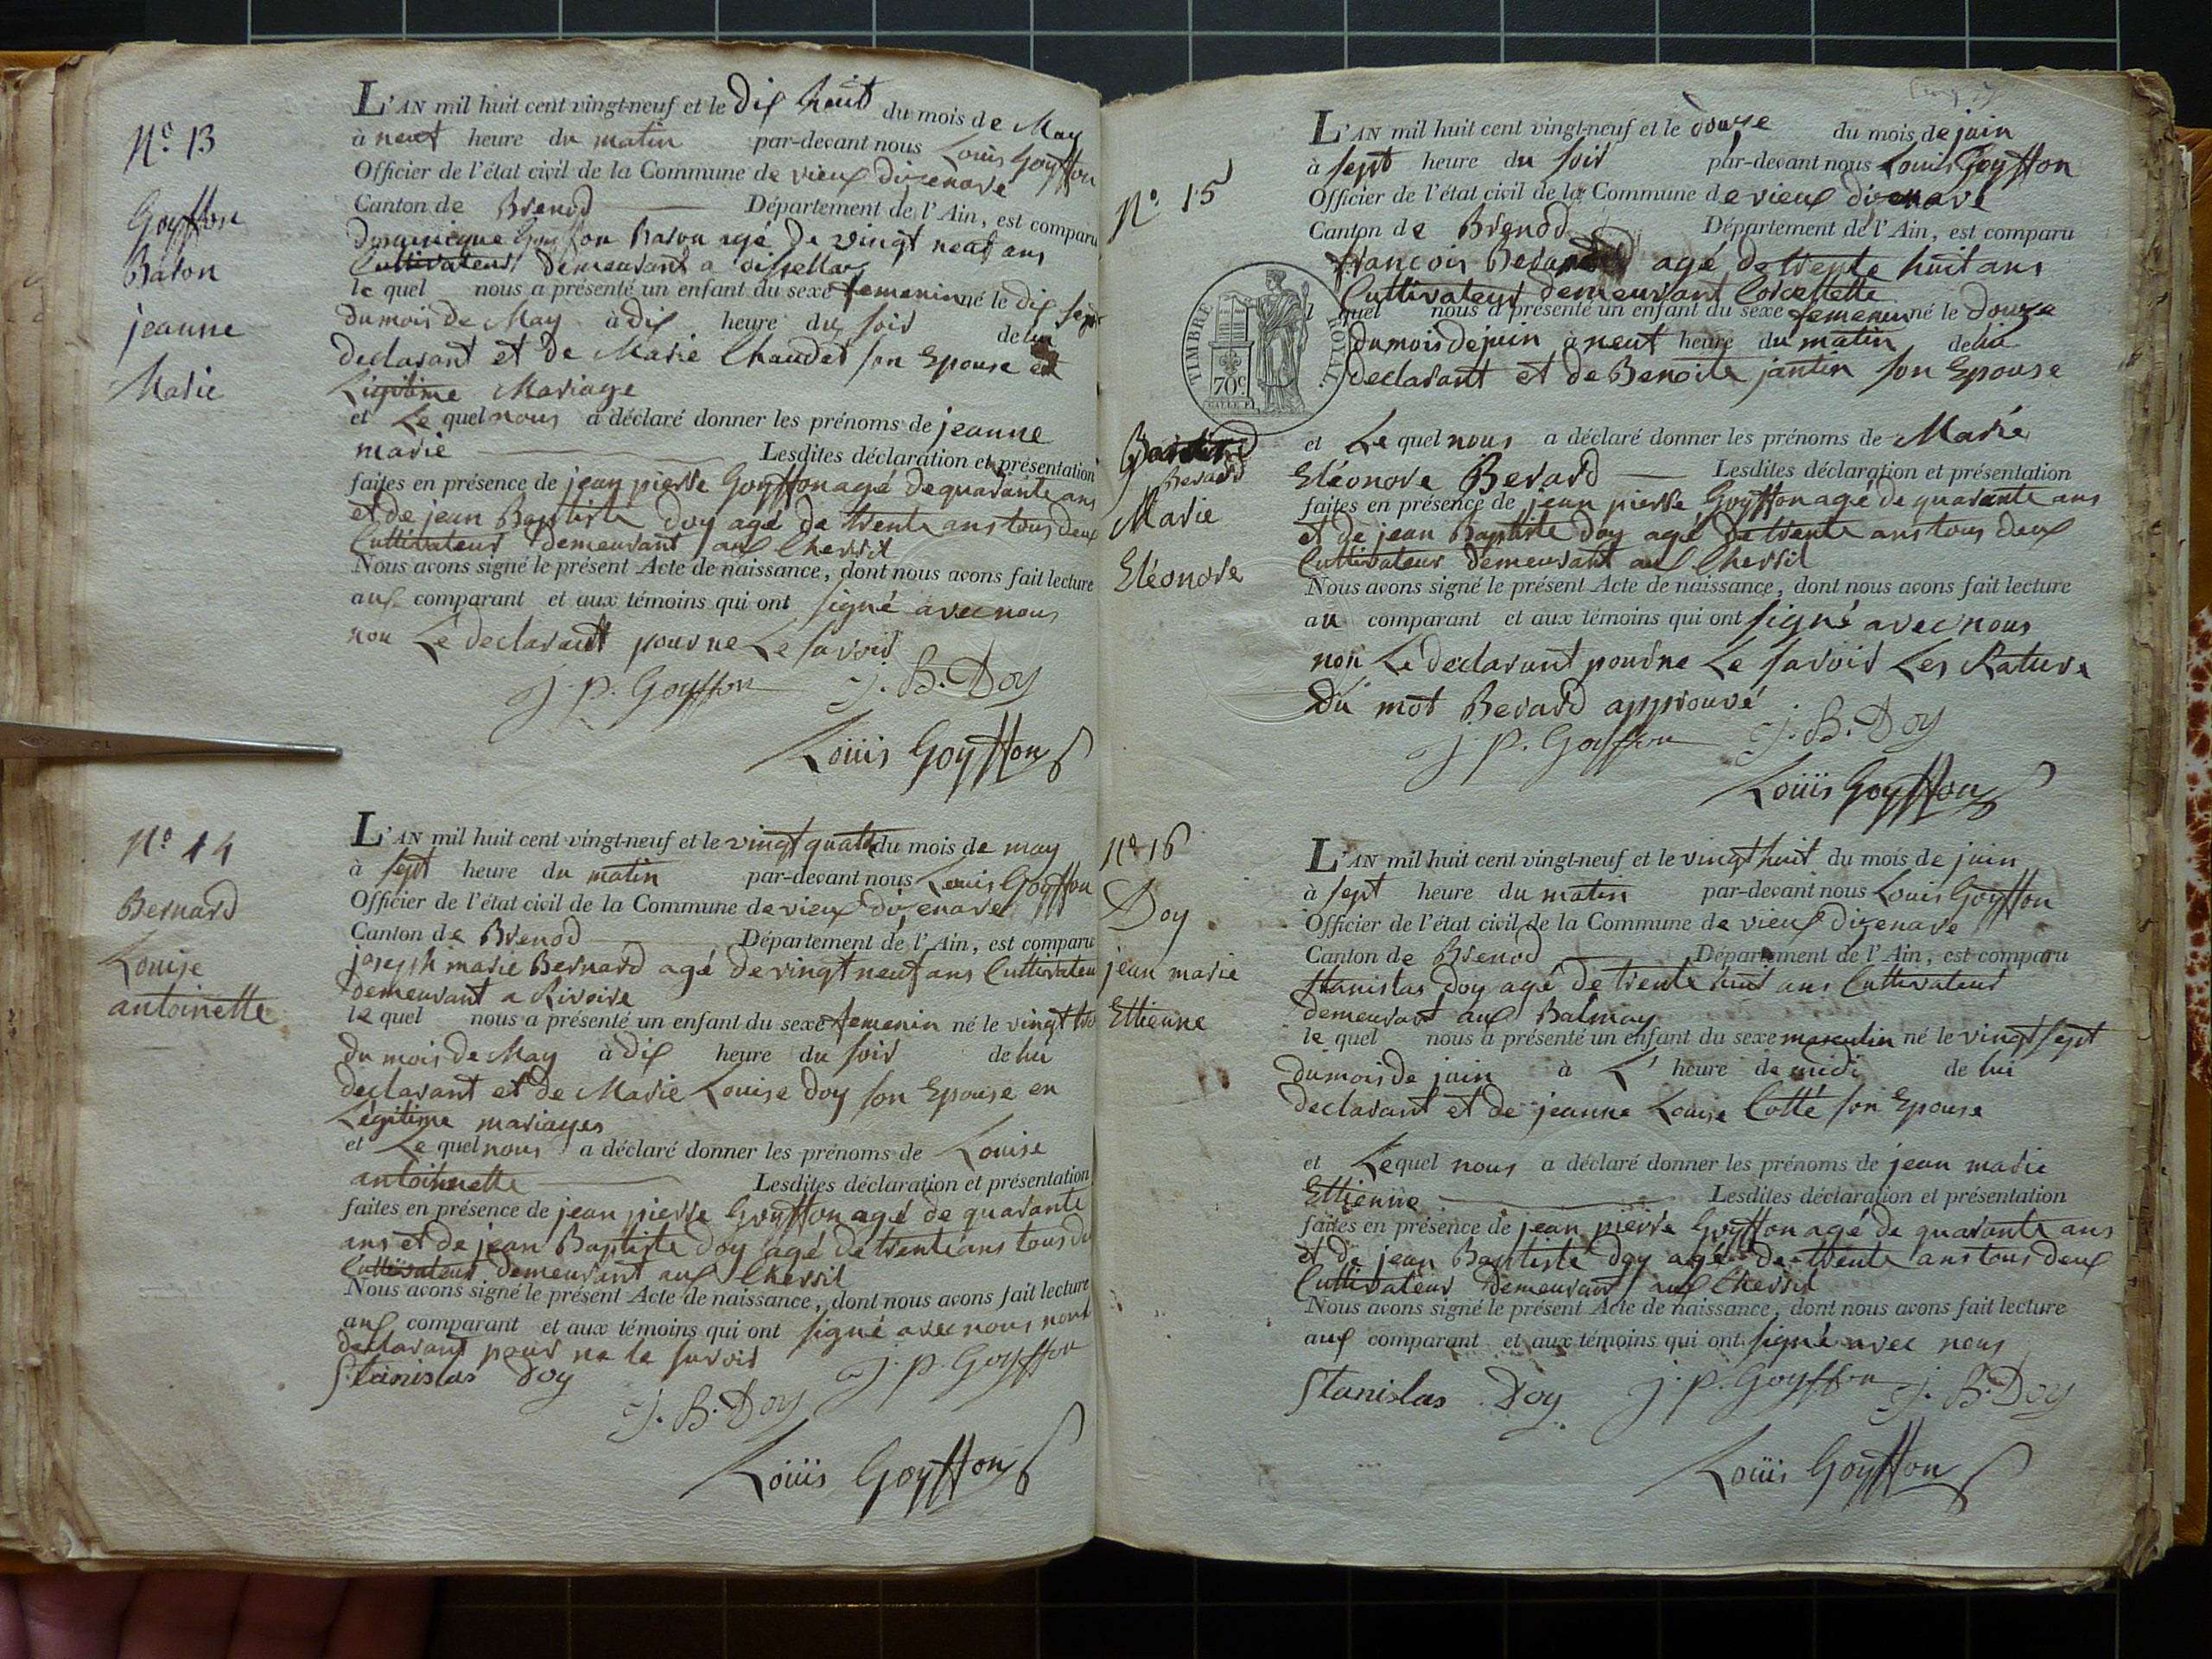 N.o 13
Goyffon
Baron
jeanne
Marie
L'AN mil huit cent vingt-neuf et le dix huit du mois de May
à neuf heure du matin par-devant nous Louis Goyffon
Officier de l'état civil de la Commune de vieux dizenave
Canton de Brenod Département de l'Ain, est comparu
Goyffon Baron agé de vingt neuf ans
Cultivateur demeurant a
le quel nous a présenté un enfant du sexe femenin né le dix sept
du mois de May à dix heure du soir de lui
declarant et de Marie Chaudet son Epouse
Ligitime Mariage
et Le quel nous a déclaré donner les prénoms de jeanne
marie Lesdites déclaration et présentation
faites en présence de jean pierre Goyffon agé de quarante ans
et de jean Baptiste Doy agé de trente ans tous deux
Cultivateur demeurant aux Chersil
Nous avons signé le présent Acte de naissance, dont nous avons fait lecture
aux comparant et aux témoins qui ont signé avec nous
non Le declarant pour ne Le savoir
J. P. Goyffon J. B. Doy
Loüis Goyffon
N.o 14
Bernard
Louise
antoinette
L'AN mil huit cent vingt-neuf et le vingt quatre du mois de may
à sept heure du matin par-devant nous Louis Goyffon
Officier de l'état civil de la Commune de vieux dizenave
Canton de Brenod Département de l'Ain, est comparu
joseph marie Bernard agé de vingt neuf ans Cultivateur
demeurant a Rivoire
le quel nous a présenté un enfant du sexe femenin né le vingt
du mois de May à dix heure du soir de lui
declarant et de Marie Louise Doy son Epouse en
Légitime mariages
et Le quel nous a déclaré donner les prénoms de Louise
antoinette Lesdites déclaration et présentation
faites en présence de jean pierre Goyffon agé de quarante
ans et de jean Baptiste Doy agé de trente ans tous
Cultivateur demeurant aux Chersil
Nous avons signé le présent Acte de naissance, dont nous avons fait lecture
aux comparant et aux témoins qui ont signé avec nous
declarant pour ne le savoir
Stanislas Doy J. P. Goyffon
J. B. Doy
Loüis Goyffon
N.o 15
TIMBRE ROYAL
70c
Berard
Marie
Eléonore
L'AN mil huit cent vingt-neuf et le douze du mois de juin
à sept heure du soir par-devant nous Louis Goyffon
Officier de l'état civil de la Commune de vieux dizenave
Canton de Brenod Département de l'Ain, est comparu
francois Berard agé de trente huit ans
Cultivateur demeurant Corcellette
l quel nous a présenté un enfant du sexe femenin né le douze
du mois de juin à neuf heure du matin de lui
declarant et de Benoite jantin son Epouse
et Le quel nous a déclaré donner les prénoms de Marie
Eléonore Berard Lesdites déclaration et présentation
faites en présence de jean pierre Goyffon agé de quarante ans
et de jean Baptiste Doy agé de trente ans tous deux
Cultivateur demeurant aux Chersil
Nous avons signé le présent Acte de naissance, dont nous avons fait lecture
au comparant et aux témoins qui ont signé avec nous
non Le declarant pour ne Le savoir Les Rature
Du mot Berard approuvé
J. P. Goyffon J. B. Doy
Loüis Goyffon
N.o 16
Doy
jean marie
Ettienne
L'AN mil huit cent vingt-neuf et le vingt huit du mois de juin
à sept heure du matin par-devant nous Louis Goyffon
Officier de l'état civil de la Commune de vieux dizenave
Canton de Brenod Département de l'Ain, est comparu
Stanislas Doy agé de trente huit ans Cultivateur
demeurant aux Balmay
le quel nous a présenté un enfant du sexe masculin né le vingt sept
du mois de juin à L' heure de midi de lui
declarant et de jeanne Louise Cotte son Epouse
et Le quel nous a déclaré donner les prénoms de jean marie
Ettienne Lesdites déclaration et présentation
faites en présence de jean pierre Goyffon agé de quarante ans
et de jean Baptiste Doy agé de trente ans tous deux
Cultivateur demeurant aux Chersil
Nous avons signé le présent Acte de naissance, dont nous avons fait lecture
aux comparant et aux témoins qui ont signé avec nous
Stanislas Doy J. P. Goyffon J. B. Doy
Loüis Goyffon